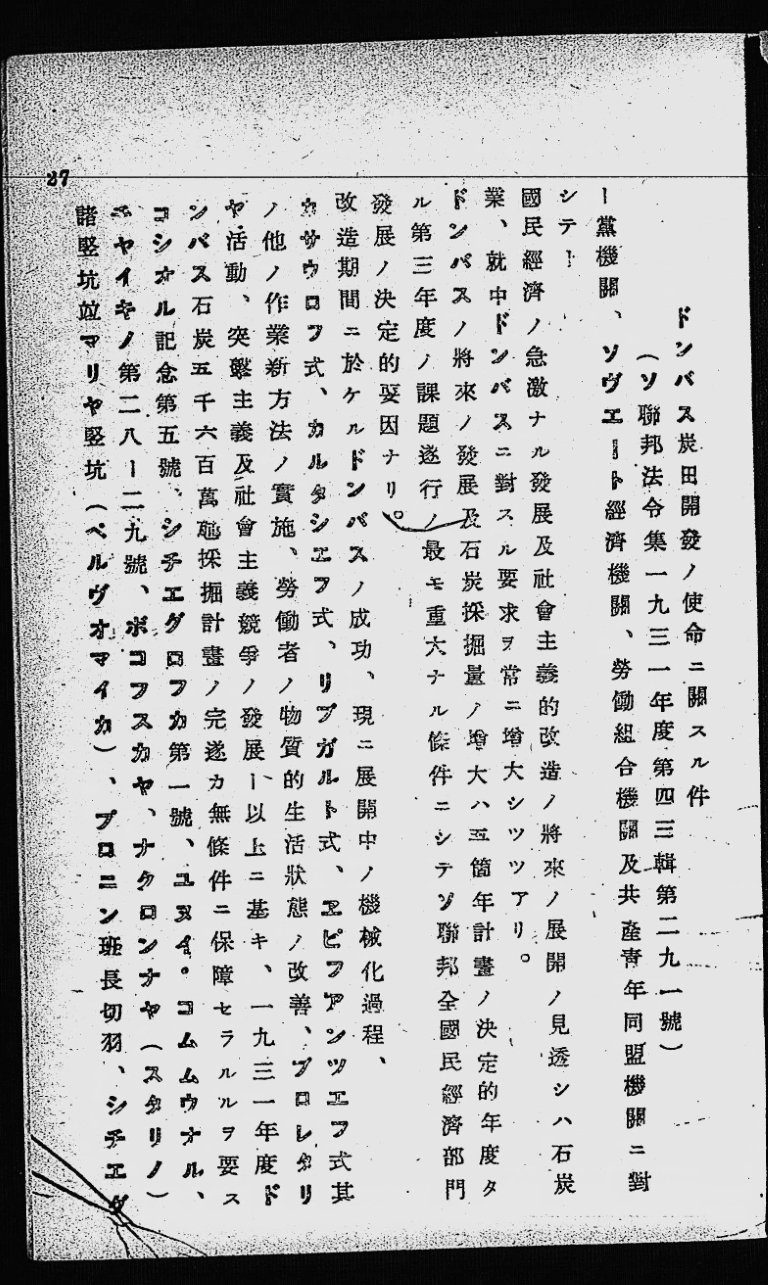 ドンバス炭田開發ノ使命ニ關スル件
（ソ聯邦法令集一九三一年度第四三輯第二九一號）
ー黨機關、ソヴエート經濟機關、勞働組合機關及共產靑年同盟機關ニ對
シテー
國民經濟ノ急激ナル發展及社會主義的改造ノ將來ノ展開ノ見透シハ石炭
業、就中ドンバスニ對スル要求ヲ常ニ增大シツツアリ。
ドンバスノ將來ノ發展及石炭採掘量ノ增大ハ五箇年計畫ノ決定的年度タ
ル第三年度ノ課題遂行ノ最モ重大ナル條件ニシテソ聯邦全國民經濟部門
發展ノ決定的要因ナリ。
改造期間ニ於ケルドンバスノ成功、現ニ展開中ノ機械化過程、
カサウロフ式、カルタシエフ式、リブガルト式、エピフアンツエフ式其
ノ他ノ作業新方法ノ實施、勞働者ノ物質的生活狀態ノ改善、プロレタリ
ヤ活動、突擊主義及社會主義競爭ノ發展ー以上ニ基キ、一九三一年度ド
ンバス石炭五千六百萬瓲採掘計畫ノ完遂カ無條件ニ保障セラルルヲ要ス
コシオル記念第五號、シチエグロフカ第一號、ユヌイ・コムムウナル、
ニヤイキノ第二八ー二九號、ボコフスカヤ、ナクロンナヤ（スタリノ）
諸竪坑竝マリヤ竪坑（ペルヴオマイカ）、プロニン班長切羽、シチエグ
27